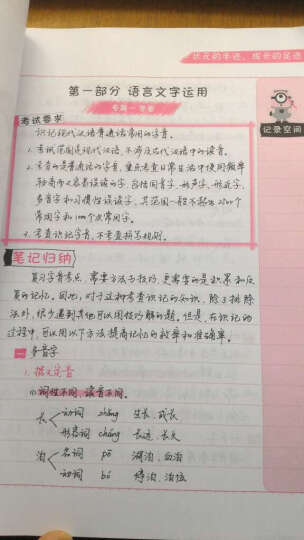 状元的手迹，成长的足迹
第一部分 语言文字运用
专题一 字音
考试要求
识记现代汉语普通话常用的字音。
1. 考试范围是现代汉语，不涉及古代汉语中的读音。
2. 考查的是普通话的字音，重点考查日常生活中使用频率
较高而又容易误读的字，包括同音字、形声字、形近字、
多音字和习惯性误读字，其范围一般不超出2500个
常用字和1000个次常用字。
3. 考查识记字音，不考查拼写规则。
记录空间
笔记归纳
复习字音考点，需要方法与技巧，更需要的是积累和反
复的记忆。因此，对于这种考查识记的知识，除了排除
法外，很少遇到其他可以用技巧解的题。但是，在识记的
过程中，可以用以下方法提高记忆的效率和准确率。
一 多音字
1. 据义定音
(1) 词性不同，读音不同。
长
动词 zhǎng 生长、成长
形容词 cháng 长远、长久
泊
名词 pō 湖泊、血泊
动词 bó 停泊、泊位